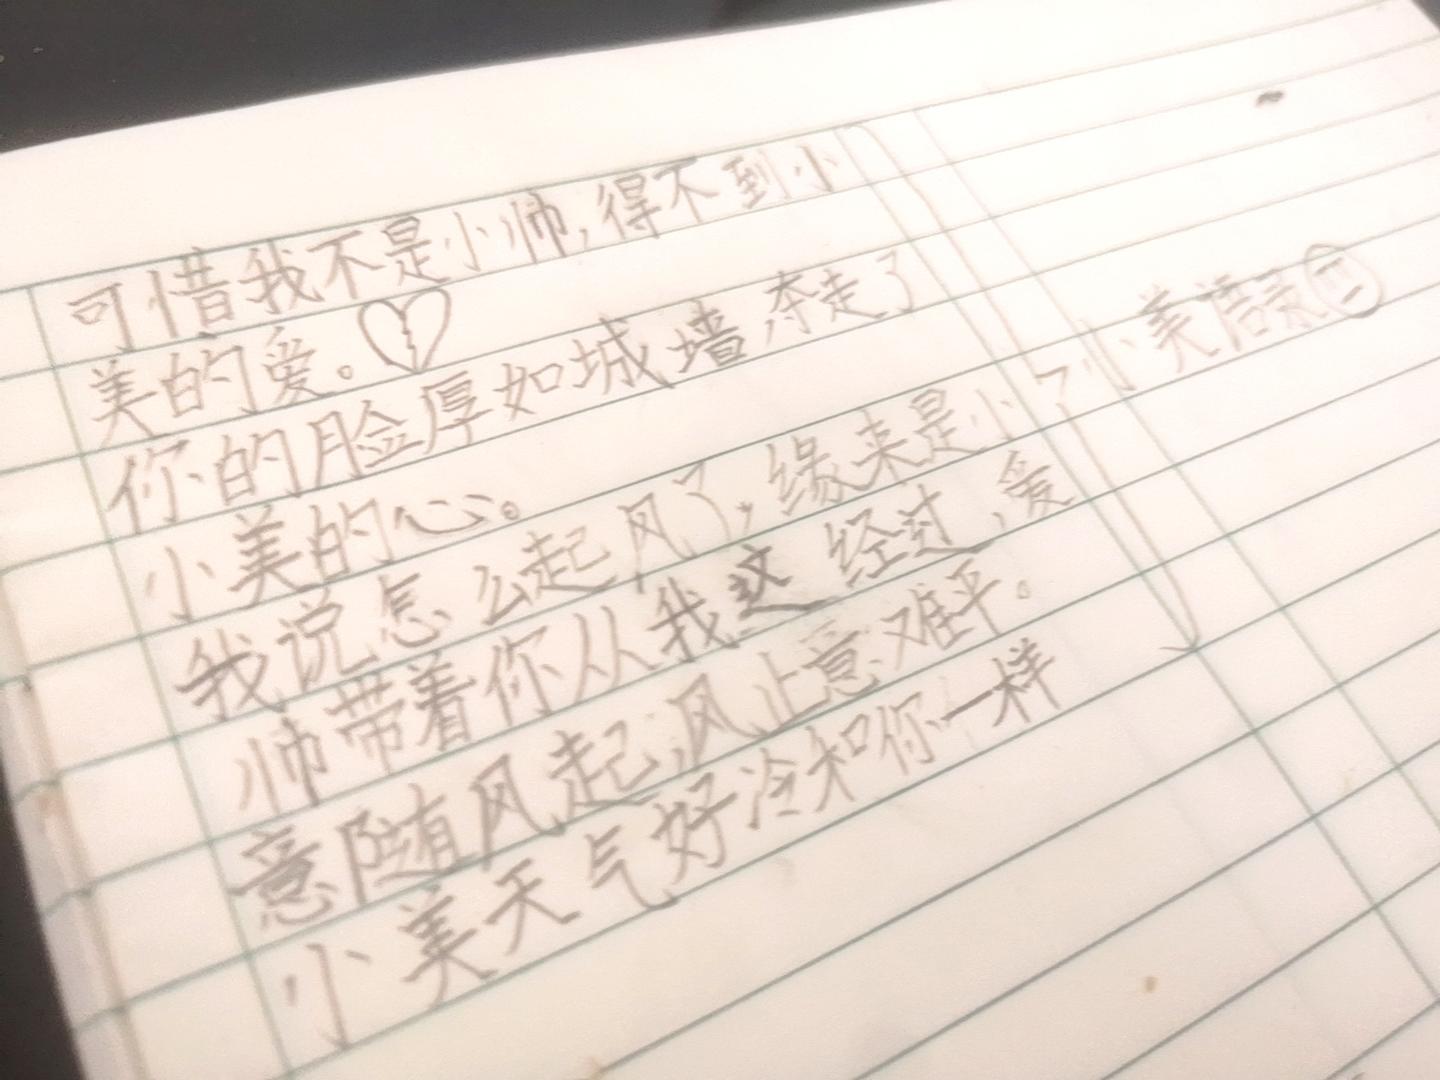 可惜我不是小帅,得不到小
美的爱。
你的脸厚如城墙夺走了
小美的心。
我说怎么起风了,缘来是小
帅带着你从我这经过,爱
意随风起,风止意难平。
小美天气好冷和你一样
小美语录